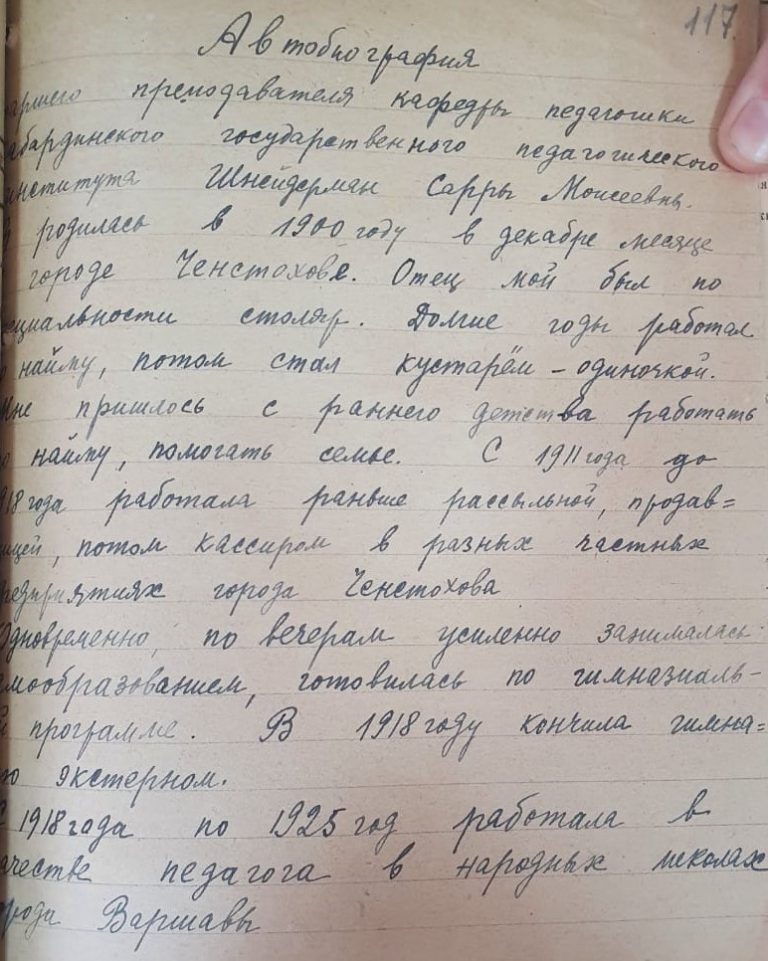 117.
Автобиография
аршего преподавателя кафедры педагогики
абардинского государственного педагогического
института Шнейдерман Сарры Моисеевны.
родилась в 1900 году в декабре месяце
городе Ченстохове. Отец мой был по
ециальности столяр. Долгие годы работал
о найму, потом стал кустарём – одиночкой.
Мне пришлось с раннего детства работать
о найму, помогать семье. С 1911 года до
918 года работала раньше рассыльной, продав=
ицей, потом кассиром в разных частных
редприятиях города Ченстохова
Одновременно, по вечерам усиленно занималась
мообразованием, готовилась по гимназиаль-
й программе. В 1918 году кончила гимна=
ю экстерном.
С 1918 года по 1925 год работала в
ачестве педагога в народных школах
рода Варшавы